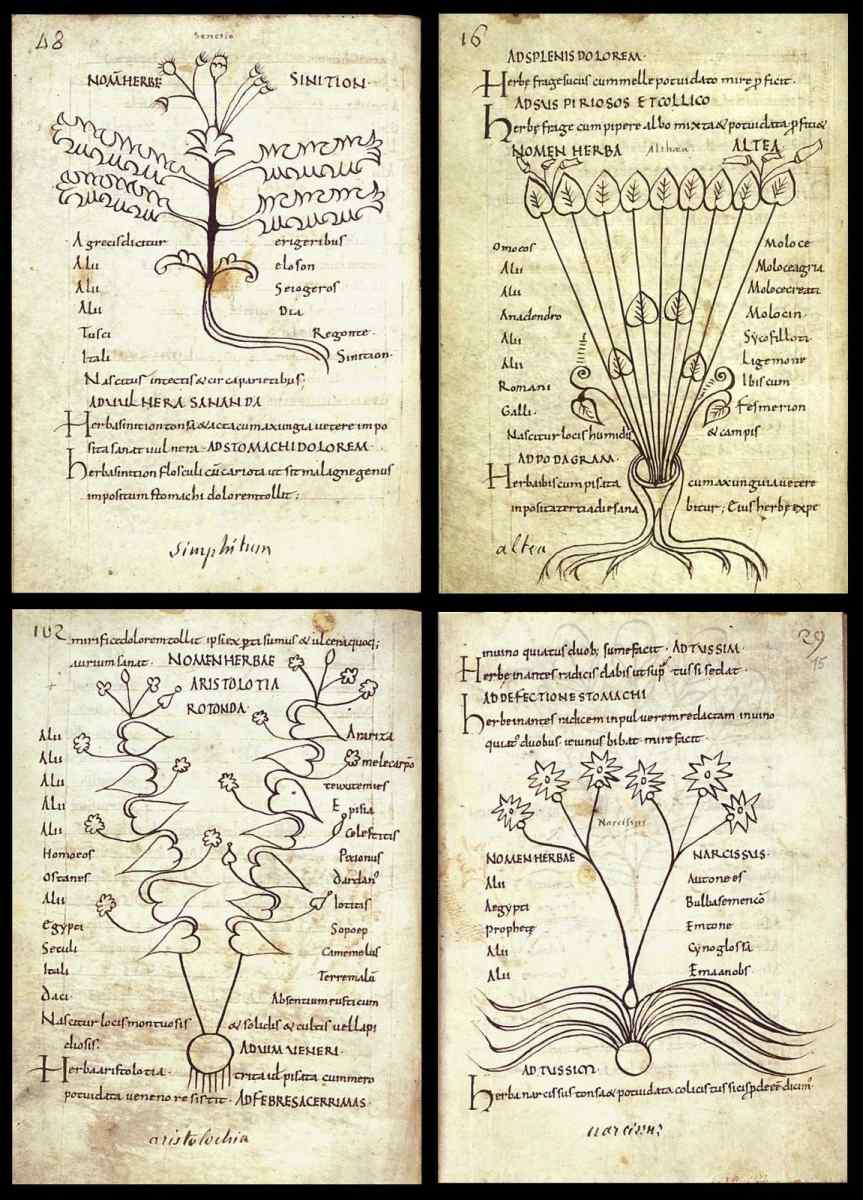 48
Senecio
NOM̄ HERBE SINITION
Agrecisdicitur erigeribus
Alii eloson
Alii Seiogeros
Alii Dia
Tusci Regonte
Itali Sinition
Nascitur intectis & circaparietibus;
AD VULNERA SANANDA
Herbasinition tonsa & acta cum axungia uetere impo
sita sanat uulnera. AD STOMACHI DOLOREM.
herbasinition flosculi cū cariota ut sit malagne genus
impositum stomachi dolorem tollit;
simphitum
16
AD SPLENIS DOLOREM.
Herbę fragę sucus cum melle potui dato mire p̱ficit.
AD SUSPIRIOSOS ET COLLICO
herbę frage cum pipere albo mixta & potui data
NOMEN HERBA Althaea ALTEA
Omoeos Moloce
Alii Moloceagria
Alii Molocecreati
Anadendro Molocin
Alii Sycofillon
Alii Ligemone
Romani Ibiscum
Galli Fesmerion
Nascitur locis humidis & campis
AD PODAGRAM.
Herba ibiscum pisata cum axungia uetere
imposita tertia die sana bitur; Eius herbę expe
altea
102
mirifice dolorem tollit ipsi exp̱ti sumus & ulcera quoq;
aurium sanat. NOMEN HERBAE
ARISTOLOTIA
ROTONDA
Alii Anarixa
Alii melecarpo
Alii teuxtemies
Alii Episia
Alii Colestitis
Homoeos Pexonus
Ostanes Dardan
Alii Iotitis
Egypti Sopoep
Seculi Camemelus
Itali Terremalū
Daci Absentium rusticum
Nascitur locis montuosis & solidis & cultis uel lapi
diosis.
AD VIM VENERI
Herba aristolotia trita uel pisata cum mero
potui data ueneno resistit. AD FEBRES ACERRIMAS.
aristolochia
29
15
in uino quiatus duob; sume facit. AD TUSSIM
Herbę inantes radicis dabis ut sup̱ tussi sedat.
AD DEFECTIONE STOMACHI
herbe inantes radicem in puluerem redactam in uino
quiat duobus ieiunus bibat. mire facit.
Narcissus
NOMEN HERBAE NARCISSUS
Alii Autonees
Aegypti Bulbasemencō
Prophetę Emtone
Alii Cynoglossa
Alii Emaanobs
AD TUSSIM.
herba narcissus tonsa & potui data
narcissus